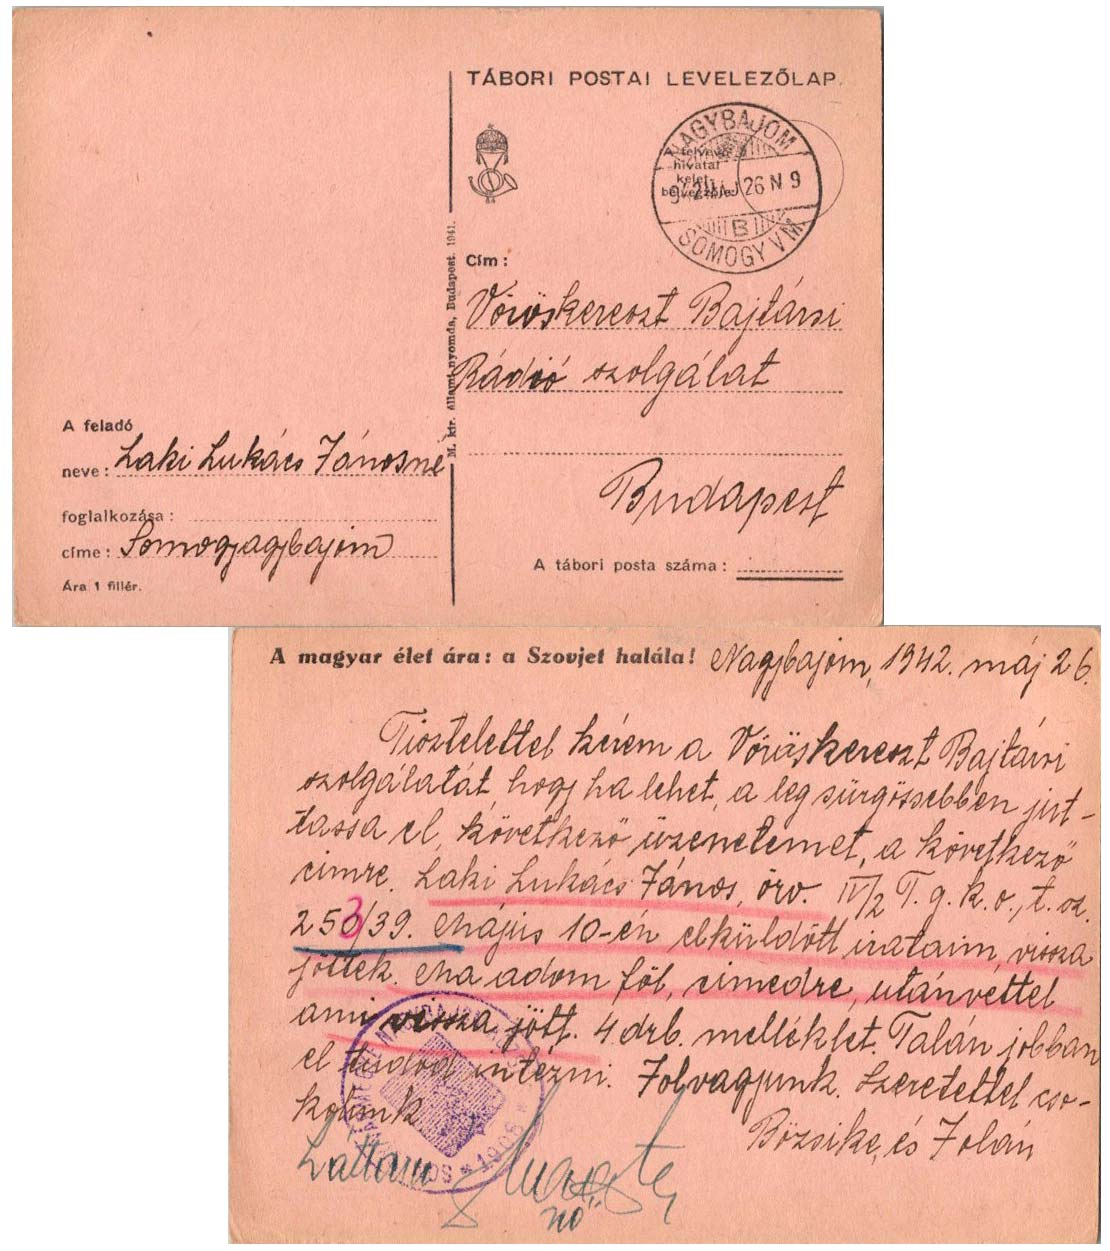 TÁBORI POSTAI LEVELEZŐLAP.
NAGYBAJOM
A felvevő
hivatal
kelet-
bélyegzője:
942 MÁJ 26 N 9
B
SOMOGY VM
84
M. kir. állami nyomda, Budapest. 1941.
Cím:
Vöröskereszt Bajtársi
Rádió szolgálat
Budapest
A tábori posta száma:
A feladó
neve: Laki Lukács Jánosné
foglalkozása:
címe: Somogjagjbajom
Ára 1 fillér.
A magyar élet ára: a Szovjet halála! Nagjbajom, 1942. máj 26.
Tisztelettel kérem a Vöröskereszt Bajtársi
szolgálatát, hogj ha lehet, a leg sürgössebben jut-
tassa el, következő üzenetemet, a következő
cimre. Laki Lukács János, örv. IV/2 T. g. k. o., t. sz.
250/39. Május 10-én elküldött irataim, vissza
3
jöttek. Ma adom föl, cimedre, utánvéttel
ami vissza jött. 4 drb. melléklet. Talán jobban
el tudod intézni. Jolvagjunk. Szeretettel cso-
kolunk
Bözsike, és Zolán
Láttam
1908